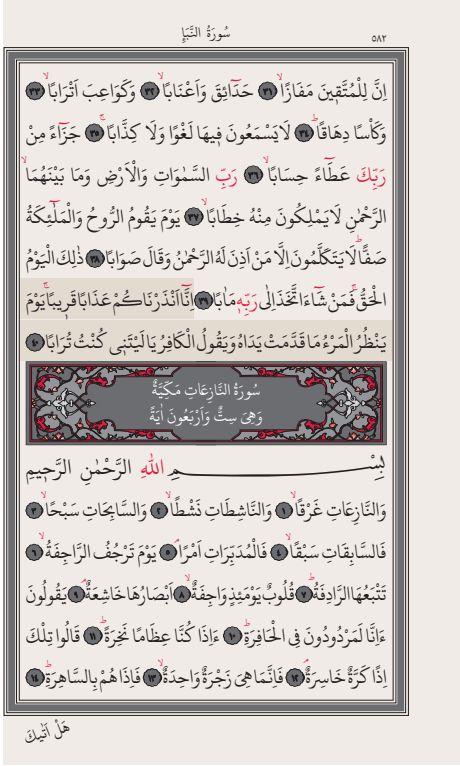 سُورَةُ النَّبَإِ
٥٨٢
اِنَّ لِلْمُتَّق۪ينَ مَفَازًاۙ ﴿٣١﴾ حَدَٓائِقَ وَاَعْنَابًاۙ ﴿٣٢﴾ وَكَوَاعِبَ اَتْرَابًاۙ ﴿٣٣﴾
وَكَأْسًا دِهَاقًاۜ ﴿٣٤﴾ لَايَسْمَعُونَ ف۪يهَا لَغْوًا وَلَا كِذَّابًاۚ ﴿٣٥﴾ جَزَٓاءً مِنْ
رَبِّكَ عَطَٓاءً حِسَابًاۙ ﴿٣٦﴾ رَبِّ السَّمٰوَاتِ وَالْاَرْضِ وَمَا بَيْنَهُمَا
الرَّحْمٰنِ لَايَمْلِكُونَ مِنْهُ خِطَابًاۚ ﴿٣٧﴾ يَوْمَ يَقُومُ الرُّوحُ وَالْمَلٰٓئِكَةُ
صَفًّاۜ لَايَتَكَلَّمُونَ اِلَّا مَنْ اَذِنَ لَهُ الرَّحْمٰنُ وَقَالَ صَوَابًا ﴿٣٨﴾ ذٰلِكَ الْيَوْمُ
الْحَقُّۚ فَمَنْ شَٓاءَ اتَّخَذَ اِلٰى رَبِّه۪ مَاٰبًا ﴿٣٩﴾ اِنَّٓا اَنْذَرْنَاكُمْ عَذَابًا قَر۪يبًاۚ يَوْمَ
يَنْظُرُ الْمَرْءُ مَا قَدَّمَتْ يَدَاهُ وَيَقُولُ الْكَافِرُ يَا لَيْتَن۪ى كُنْتُ تُرَابًا ﴿٤٠﴾
سُورَةُ النَّازِعَاتِ مَكِّيَّةٌ
وَهِيَ سِتٌّ وَاَرْبَعُونَ اٰيَةً
بِسْمِ اللّٰهِ الرَّحْمٰنِ الرَّح۪يمِ
وَالنَّازِعَاتِ غَرْقًاۙ ﴿١﴾ وَالنَّاشِطَاتِ نَشْطًاۙ ﴿٢﴾ وَالسَّابِحَاتِ سَبْحًاۙ ﴿٣﴾
فَالسَّابِقَاتِ سَبْقًاۙ ﴿٤﴾ فَالْمُدَبِّرَاتِ اَمْرًاۢ ﴿٥﴾ يَوْمَ تَرْجُفُ الرَّاجِفَةُۙ ﴿٦﴾
تَتْبَعُهَا الرَّادِفَةُۜ ﴿٧﴾ قُلُوبٌ يَوْمَئِذٍ وَاجِفَةٌۙ ﴿٨﴾ اَبْصَارُهَا خَاشِعَةٌۢ ﴿٩﴾ يَقُولُونَ
ءَاِنَّا لَمَرْدُودُونَ فِى الْحَافِرَةِۜ ﴿١٠﴾ ءَاِذَا كُنَّا عِظَامًا نَخِرَةًۜ ﴿١١﴾ قَالُوا تِلْكَ
اِذًا كَرَّةٌ خَاسِرَةٌۢ ﴿١٢﴾ فَاِنَّمَا هِىَ زَجْرَةٌ وَاحِدَةٌۙ ﴿١٣﴾ فَاِذَا هُمْ بِالسَّاهِرَةِۜ ﴿١٤﴾
هَلْ اَتٰيكَ